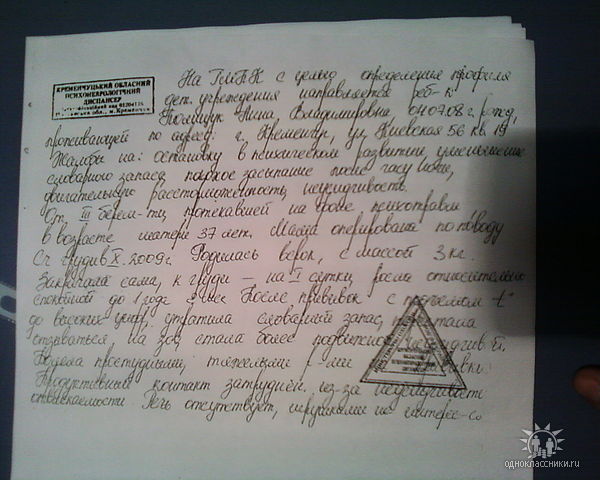 КРЕМЕНЧУЦЬКИЙ ОБЛАСНИЙ
ПСИХОНЕВРОЛОГІЧНИЙ
ДИСПАНСЕР
На ПМПК с целью определения профиля
дет. учреждения направляется реб-к
Нина, Владимировна 04.07.08 г. рожд,
проживающей по адресу: г. Кременчуг, ул. Киевская 56 кв. 19
Жалобы на: остановку в психическом развитии, уменьшение
словарного запаса, плохое засыпание после часу ночи,
двигательную расторможенность, неусидчивость.
От III берем-ти, протекавшей на фоне психотравм
в возрасте матери 37 лет. Мама оперирована по поводу
Cr груди в X. 2009г. Родилась в срок, с массой 3 кг.
Закричала сама, к груди – на I сутки, росла относительно
спокойной до 1 года После прививок с подъемом t°
до высоких цифр, утратила словарный запас, перестала
отзываться на зов, стала более подвижной,
Болела простудными,
Продуктивный контакт затруднен из-за неусидчивости
отвлекаемости. Речь отсутствует, игрушками не интерес-ся
одноклассники.ru